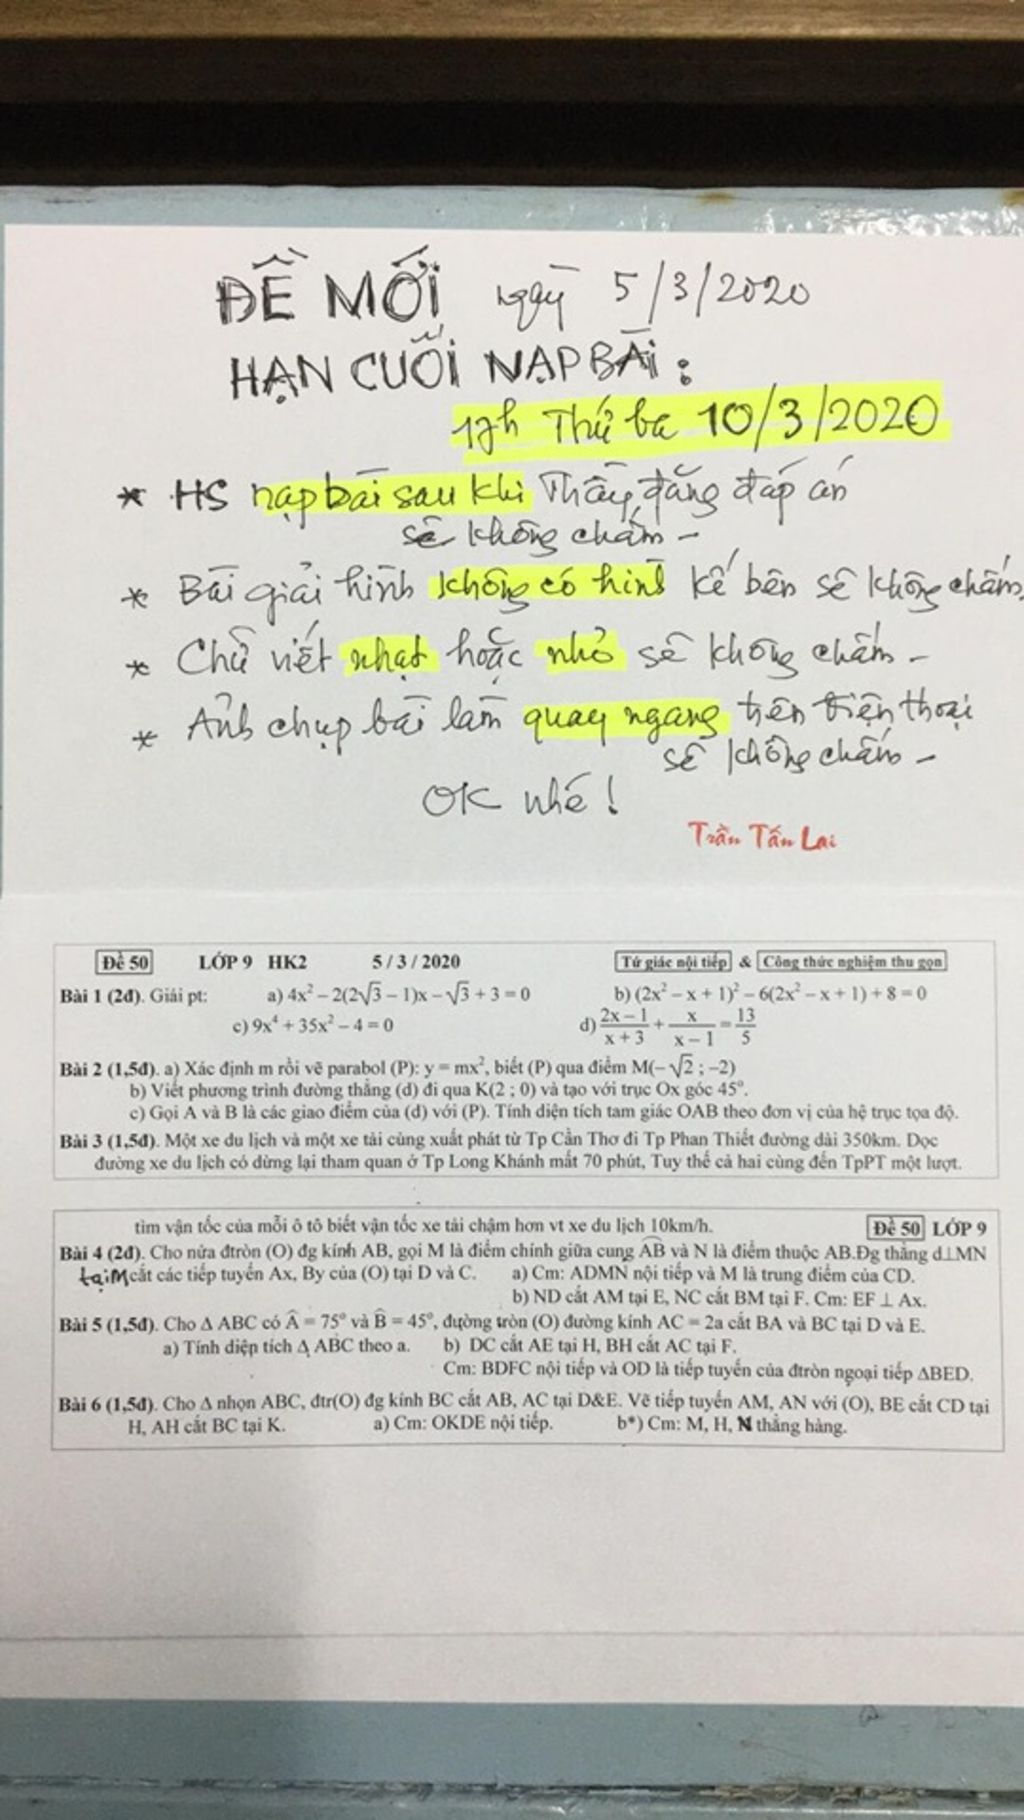 ĐỀ MỚI ngày 5/3/2020
HẠN CUỐI NẠP BÀI:
17h Thứ ba 10/3/2020
* HS nạp bài sau khi Thầy đăng đáp án
sẽ không chấm -
* Bài giải hình không có hình kế bên sẽ không chấm,
* Chữ viết nhạt hoặc nhỏ sẽ không chấm -
* Ảnh chụp bài làm quay ngang trên điện thoại
sẽ không chấm -
OK nhé!
Trần Tấn Lai
Đề 50 LỚP 9 HK2 5 / 3 / 2020 Tứ giác nội tiếp & Công thức nghiệm thu gọn
Bài 1 (2đ). Giải pt: a) 4x² – 2(2√3 – 1)x – √3 + 3 = 0 b) (2x² – x + 1)² – 6(2x² – x + 1) + 8 = 0
c) 9x⁴ + 35x² – 4 = 0 d) (2x – 1)/(x + 3) + x/(x – 1) = 13/5
Bài 2 (1,5đ). a) Xác định m rồi vẽ parabol (P): y = mx², biết (P) qua điểm M(– √2 ; –2)
b) Viết phương trình đường thẳng (d) đi qua K(2 ; 0) và tạo với trục Ox góc 45°.
c) Gọi A và B là các giao điểm của (d) với (P). Tính diện tích tam giác OAB theo đơn vị của hệ trục tọa độ.
Bài 3 (1,5đ). Một xe du lịch và một xe tải cùng xuất phát từ Tp Cần Thơ đi Tp Phan Thiết đường dài 350km. Dọc
đường xe du lịch có dừng lại tham quan ở Tp Long Khánh mất 70 phút, Tuy thế cả hai cùng đến TpPT một lượt.
tìm vận tốc của mỗi ô tô biết vận tốc xe tải chậm hơn vt xe du lịch 10km/h. Đề 50 LỚP 9
Bài 4 (2đ). Cho nửa đtròn (O) đg kính AB, gọi M là điểm chính giữa cung AB và N là điểm thuộc AB.Đg thẳng d⊥MN
tại M cắt các tiếp tuyến Ax, By của (O) tại D và C. a) Cm: ADMN nội tiếp và M là trung điểm của CD.
b) ND cắt AM tại E, NC cắt BM tại F. Cm: EF ⊥ Ax.
Bài 5 (1,5đ). Cho Δ ABC có Â = 75° và B̂ = 45°, đường tròn (O) đường kính AC = 2a cắt BA và BC tại D và E.
a) Tính diện tích Δ ABC theo a. b) DC cắt AE tại H, BH cắt AC tại F.
Cm: BDFC nội tiếp và OD là tiếp tuyến của đtròn ngoại tiếp ΔBED.
Bài 6 (1,5đ). Cho Δ nhọn ABC, đtr(O) đg kính BC cắt AB, AC tại D&E. Vẽ tiếp tuyến AM, AN với (O), BE cắt CD tại
H, AH cắt BC tại K. a) Cm: OKDE nội tiếp. b*) Cm: M, H, N thẳng hàng.